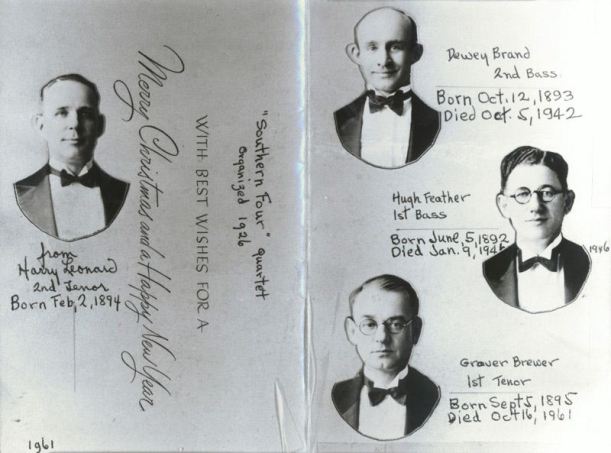 Merry Christmas and a Happy New Year
WITH BEST WISHES FOR A
"Southern Four" quartet
organized 1926
from
Harry Leonard
2nd Tenor
Born Feb, 2, 1894
1961
Dewey Brand
2nd Bass
Born Oct. 12, 1893
Died Oct. 5, 1942
Hugh Feather
1st Bass
Born June, 5, 1892
Died Jan. 9, 1946
1946
Graver Brewer
1st Tenor
Born Sept 5, 1895
Died Oct 16, 1961